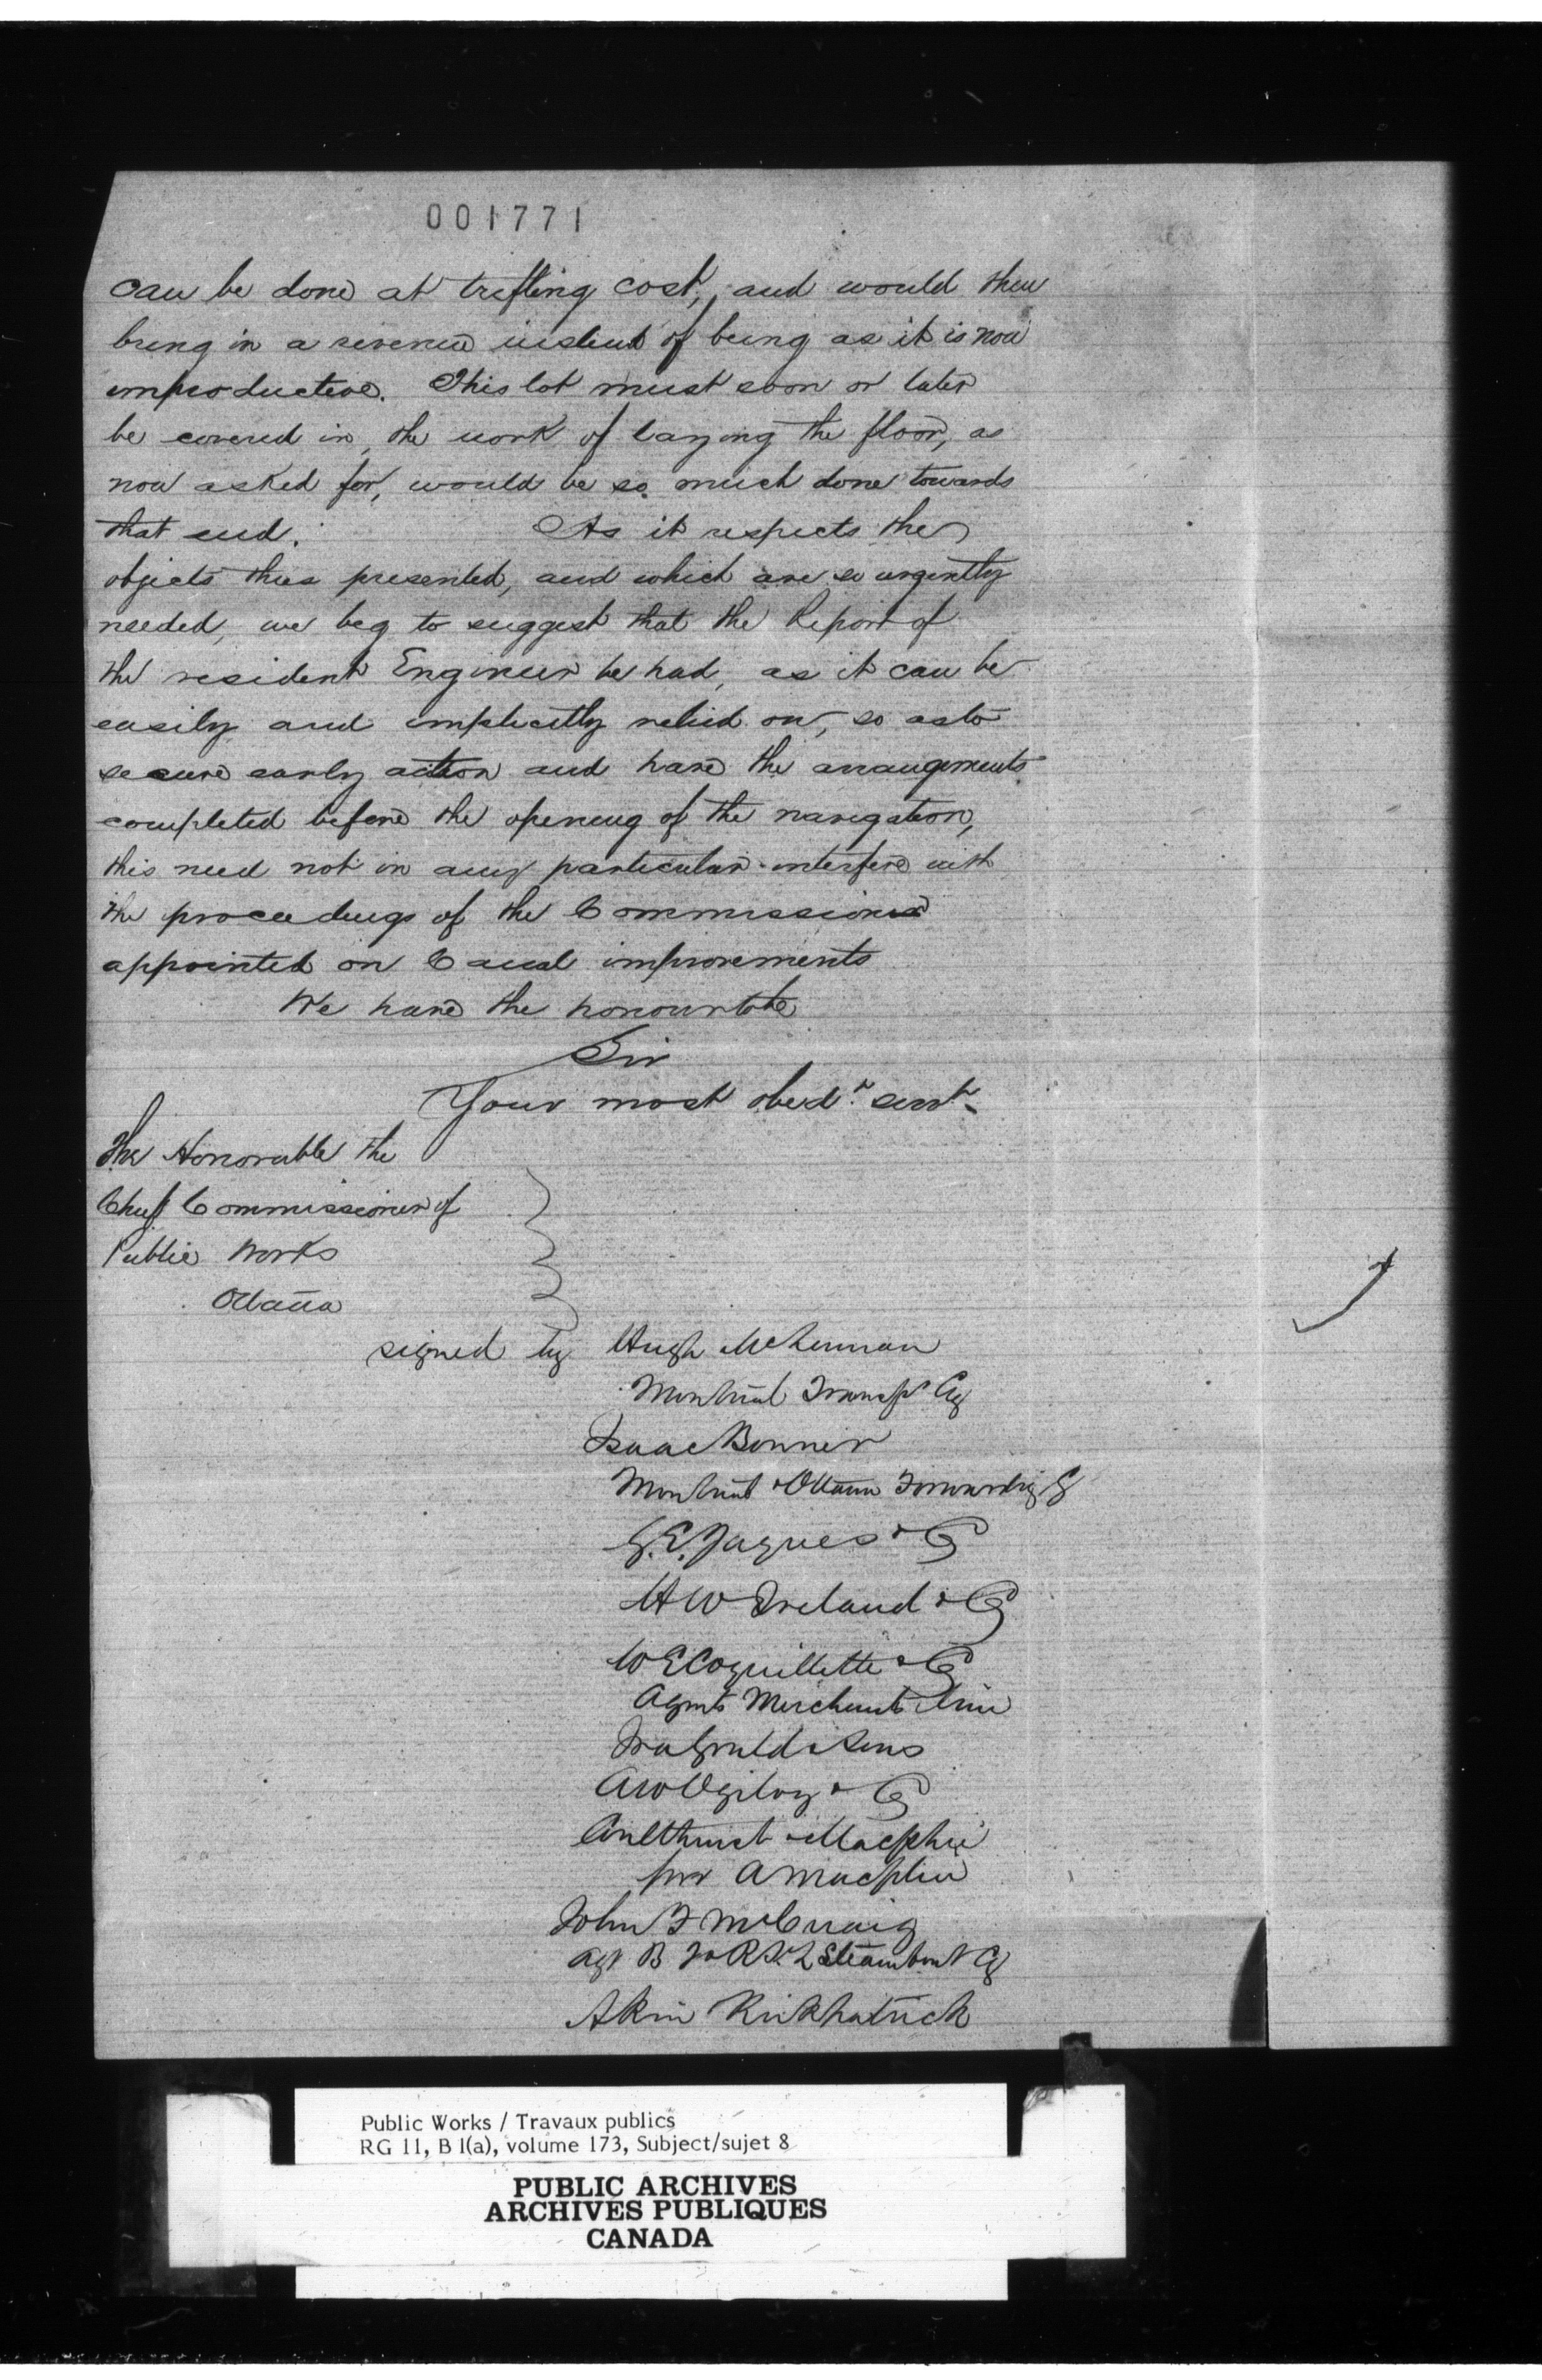 001771
can be done at trifling cost, and would then
bring in a revenue instead of being as it is now
unproductive. This lot must soon or later
be covered in, the work of laying the floor, as
now asked for, would be so much done towards
that end. As it respects the
objects thus presented, and which are so urgently
needed, we beg to suggest that the Report of
the resident Engineer be had, as it can be
easily and implicitly relied on, so as to
secure early action and have the arrangements
completed before the opening of the navigation,
this need not in any particular interfere with
the proceedings of the Commission
appointed on Canal improvements
We have the honour to be
Sir
Your most obedt. servt.
The Honorable the
Chief Commissioner of
Public Works
Ottawa
signed by Hugh McLennan
Montreal Transpt Co
Isaac Bonner
Montreal & Ottawa Forwarding Co
G. E. Jaques & Co
H W Ireland & Co
W E Coquillette & Co
Agents Merchants Line
Ira Gould & Sons
A W Ogilvy & Co
Macphie
per A Macphie
John F McCuaig
Agt Steamboat Co
Akin Kirkpatrick
Public Works / Travaux publics
RG 11, B 1(a), volume 173, Subject/sujet 8
PUBLIC ARCHIVES
ARCHIVES PUBLIQUES
CANADA